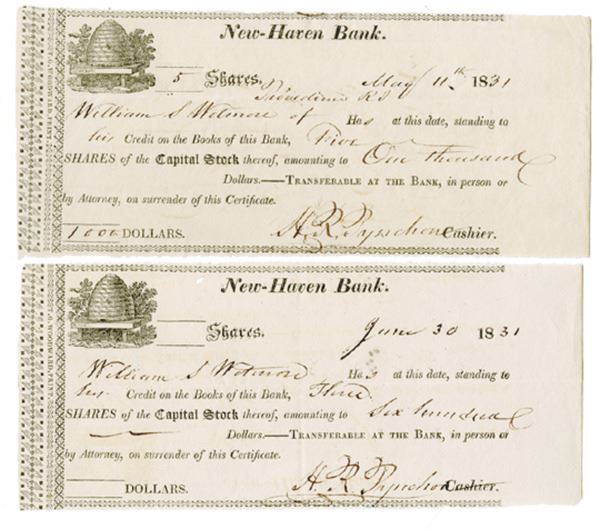 New-Haven Bank.
5 Shares. May 11th 1831
Providence R I
William S Wetmore of Has at this date, standing to
his Credit on the Books of this Bank, Five
SHARES of the Capital Stock thereof, amounting to One thousand
Dollars.—TRANSFERABLE AT THE BANK, in person or
by Attorney, on surrender of this Certificate.
1000 DOLLARS. H. R. Pynchon Cashier.
New-Haven Bank.
Shares. June 30 1831
William S Wetmore Has at this date, standing to
his Credit on the Books of this Bank, Three
SHARES of the Capital Stock thereof, amounting to Six hundred
Dollars.—TRANSFERABLE AT THE BANK, in person or
by Attorney, on surrender of this Certificate.
DOLLARS. H. R. Pynchon Cashier.